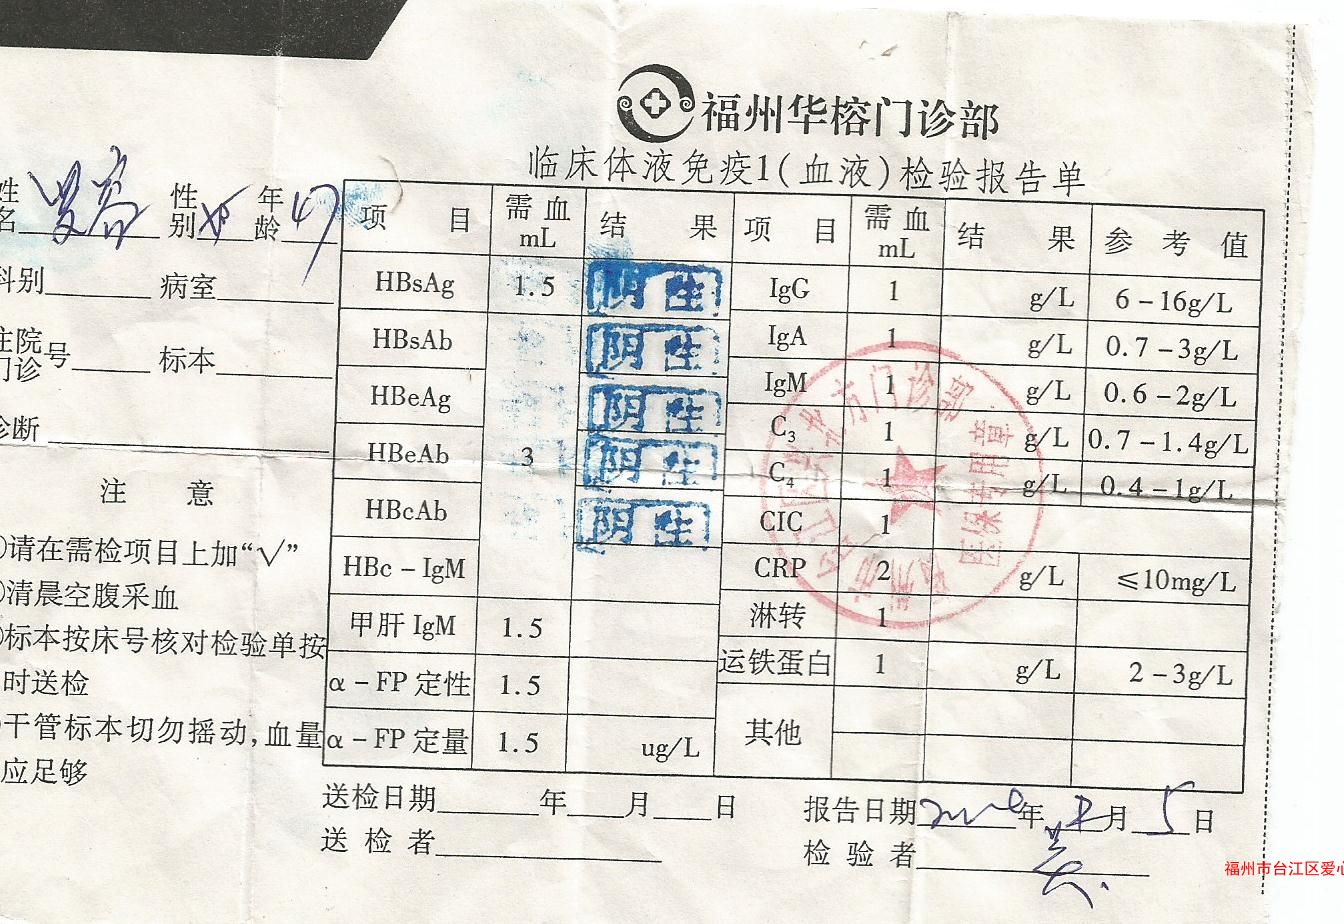 福州华榕门诊部
临床体液免疫1(血液)检验报告单
姓名 性别 年龄 47
科别 病室
住院门诊号 标本
诊断
注 意
请在需检项目上加“√”
清晨空腹采血
标本按床号核对检验单按
时送检
干管标本切勿摇动,血量
应足够
项 目 需血mL 结 果 项 目 需血mL 结 果 参 考 值
HBsAg 1.5 阴性 IgG 1 g/L 6-16g/L
HBsAb 阴性 IgA 1 g/L 0.7-3g/L
HBeAg 阴性 IgM 1 g/L 0.6-2g/L
HBeAb 3 阴性 C3 1 g/L 0.7-1.4g/L
HBcAb 阴性 C4 1 g/L 0.4-1g/L
CIC 1
HBc-IgM CRP 2 g/L ≤10mg/L
甲肝IgM 1.5 淋转 1
α-FP定性 1.5 运铁蛋白 1 g/L 2-3g/L
α-FP定量 1.5 ug/L 其他
医保专用章
送检日期 年 月 日 报告日期 年 月 5 日
送 检 者 检 验 者
福州市台江区爱心